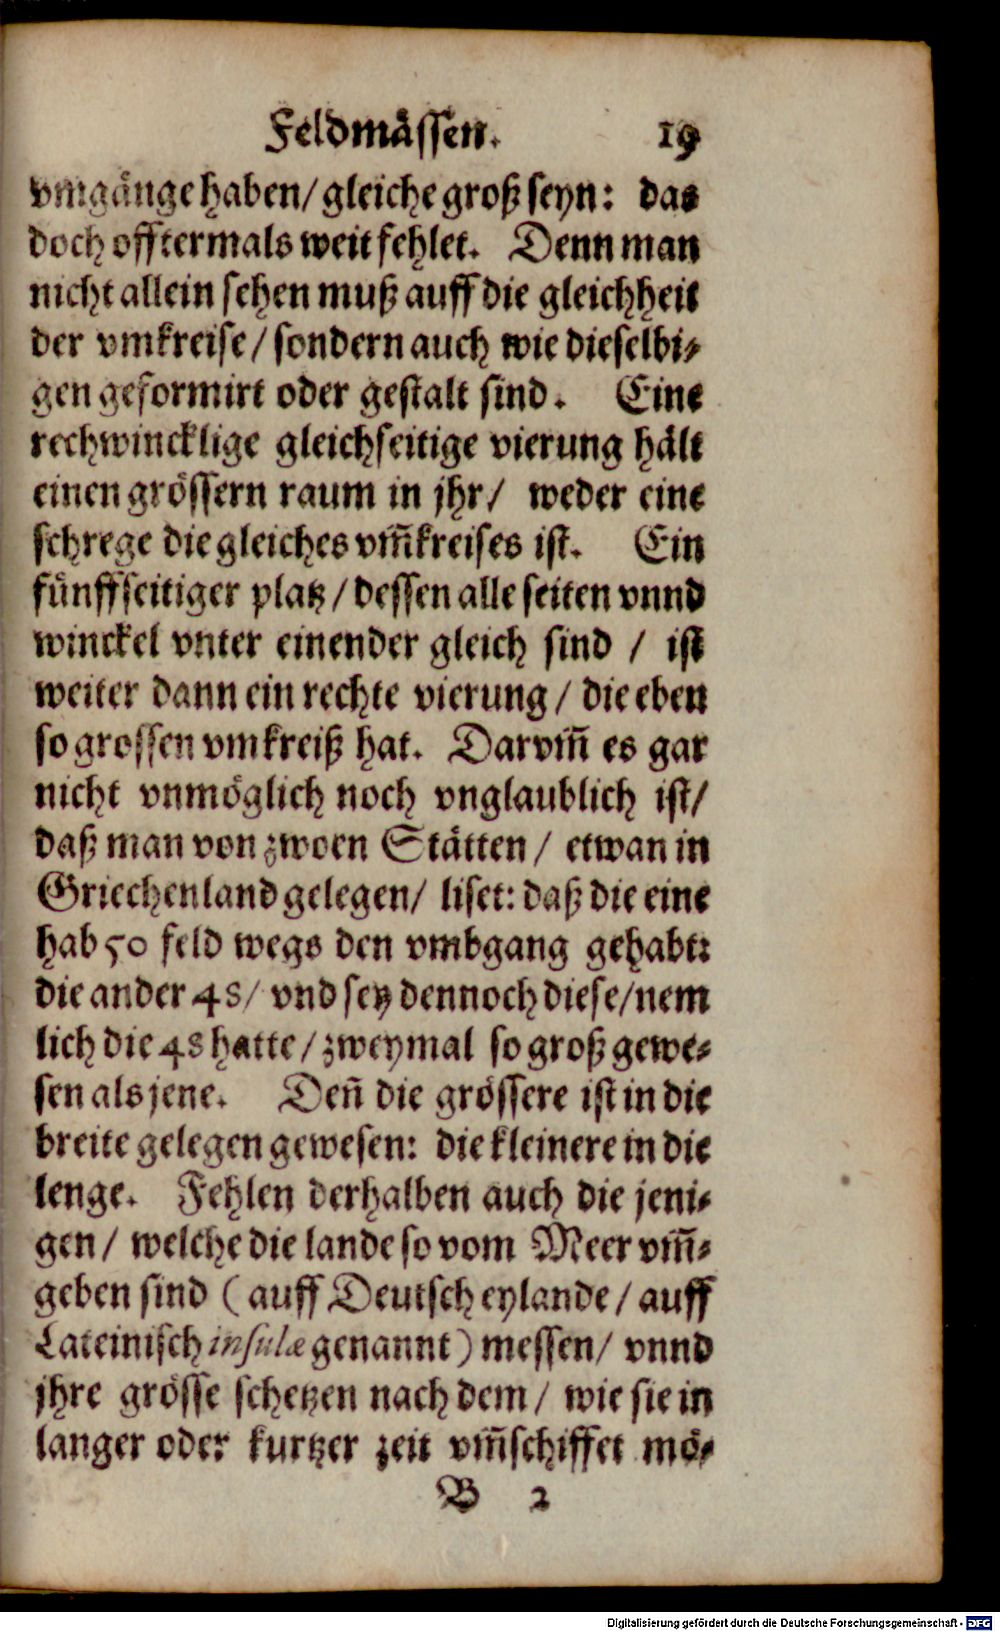 Feldmässen. 19
vmgänge haben/ gleiche groß seyn: das
doch offtermals weit fehlet. Denn man
nicht allein sehen muß auff die gleichheit
der vmkreise/ sondern auch wie dieselbi-
gen geformirt oder gestalt sind. Eine
rechwincklige gleichseitige vierung hält
einen grössern raum in jhr/ weder eine
schrege die gleiches vm̃kreises ist. Ein
fünffseitiger platz/ dessen alle seiten vnnd
winckel vnter einender gleich sind / ist
weiter dann ein rechte vierung/ die eben
so grossen vmkreiß hat. Darvm̃ es gar
nicht vnmöglich noch vnglaublich ist/
daß man von zwoen Stätten/ etwan in
Griechenland gelegen/ liset: daß die eine
hab 50 feld wegs den vmbgang gehabt:
die ander 48/ vnd sey dennoch diese/ nem
lich die 48 hatte/ zweymal so groß gewe-
sen als jene. Deñ die grössere ist in die
breite gelegen gewesen: die kleinere in die
lenge. Fehlen derhalben auch die jeni-
gen/ welche die lande so vom Meer vm̃-
geben sind (auff Deutsch eylande/ auff
Lateinisch insulæ genannt) messen/ vnnd
jhre grösse schetzen nach dem/ wie sie in
langer oder kurtzer zeit vm̃schiffet mö-
B 2
Digitalisierung gefördert durch die Deutsche Forschungsgemeinschaft - DFG